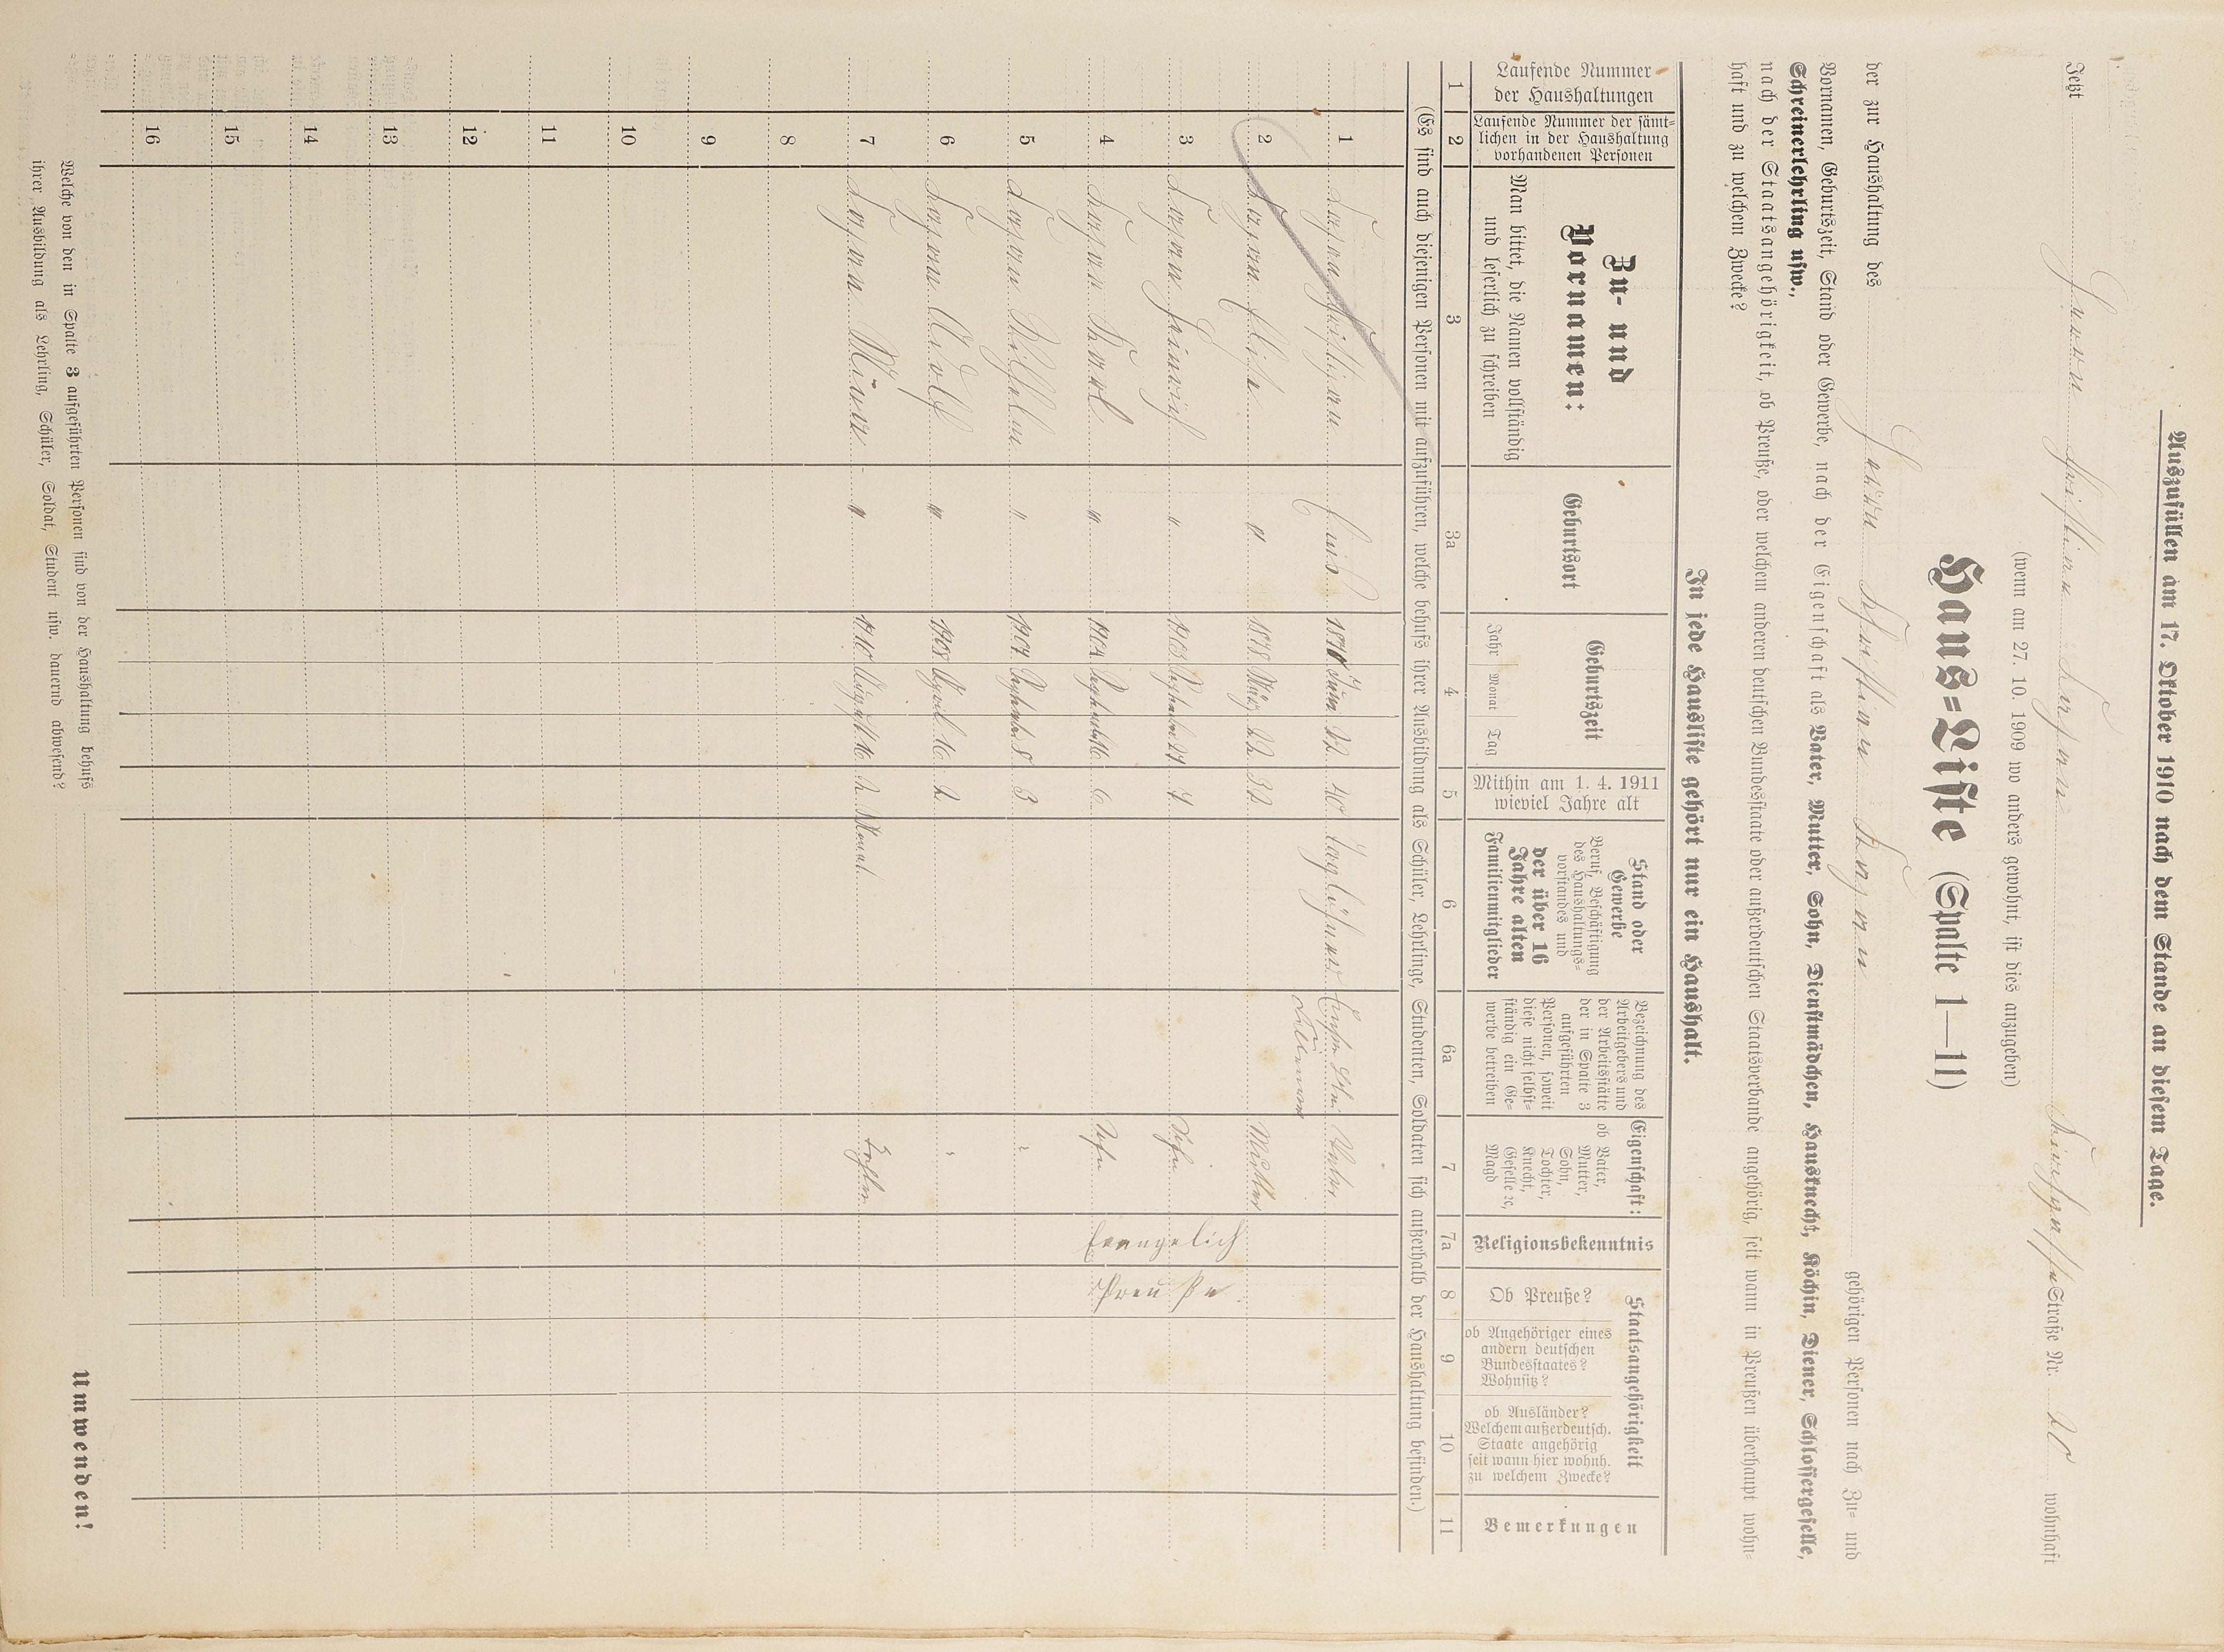 Auszufüllen am 17. Oktober 1910 nach dem Stande an diesem Tage.
Jetzt Straße Nr. 20 wohnhaft
(wenn am 27. 10. 1909 wo anders gewohnt, ist dies anzugeben)
Haus=Liste (Spalte 1—11)
der zur Haushaltung des gehörigen Personen nach Zu= und
Vornamen, Geburtszeit, Stand oder Gewerbe, nach der Eigenschaft als Vater, Mutter, Sohn, Dienstmädchen, Hausknecht, Köchin, Diener, Schlossergeselle,
Schreinerlehrling usw.,
nach der Staatsangehörigkeit, ob Preuße, oder welchem anderen deutschen Bundesstaate oder außerdeutschen Staatsverbande angehörig, seit wann in Preußen überhaupt wohn=
haft und zu welchem Zwecke?
In jede Hausliste gehört nur ein Haushalt.
Laufende Nummer
der Haushaltungen
Laufende Nummer der sämt=
lichen in der Haushaltung
vorhandenen Personen
Zu- und
Vornamen:
Man bittet, die Namen vollständig
und leserlich zu schreiben
Geburtsort
Geburtszeit
Jahr Monat Tag
Mithin am 1. 4. 1911
wieviel Jahre alt
Stand oder
Gewerbe
Beruf, Beschäftigung
des Haushaltungs=
vorstandes und
der über 16
Jahre alten
Familienmitglieder
Bezeichnung des
Arbeitgebers und
der Arbeitsstätte
der in Spalte 3
aufgeführten
Personen, soweit
diese nicht selbst=
ständig ein Ge=
werbe betreiben
Eigenschaft:
ob Vater,
Mutter,
Sohn,
Tochter,
Knecht,
Geselle ꝛc,
Magd
Religionsbekenntnis
Staatsangehörigkeit
Ob Preuße?
ob Angehöriger eines
andern deutschen
Bundesstaates?
Wohnsitz?
ob Ausländer?
Welchem außerdeutsch.
Staate angehörig
seit wann hier wohnh.
zu welchem Zwecke?
Bemerkungen
1 2 3 3a 4 5 6 6a 7 7a 8 9 10 11
(Es sind auch diejenigen Personen mit aufzuführen, welche behufs ihrer Ausbildung als Schüler, Lehrlinge, Studenten, Soldaten sich außerhalb der Haushaltung befinden.)
1 Christian 1870 Juni 22 40 Taglöhner Vater
2 Elise " 1878 März 22 32 Mutter Evangelich Preuße
3 Heinrich " 1903 September 27 7 Sohn
4 Karl " 1904 September 16 6 Sohn
5 Wilhelm " 1907 September 8 3 "
6 Adolf " 1908 April 16 2 "
7 Mina " 1910 August 16 2 Monat. Tochter
8
9
10
11
12
13
14
15
16
Welche von den in Spalte 3 aufgeführten Personen sind von der Haushaltung behufs
ihrer Ausbildung als Lehrling, Schüler, Soldat, Student usw. dauernd abwesend?
Umwenden!